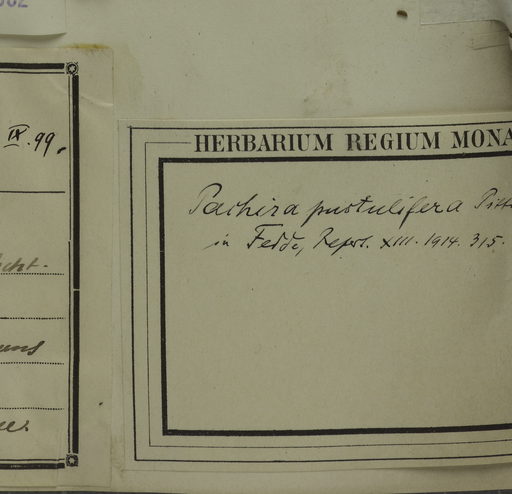 IX.99.
HERBARIUM REGIUM MONA
Pachira pustulifera Pitt
in Fedde, Repert. XIII. 1914. 315.